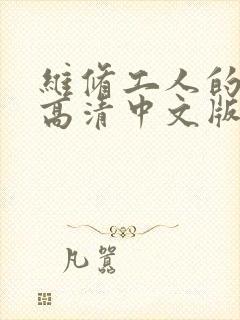 维修工人的
高清中文版
凡嚣